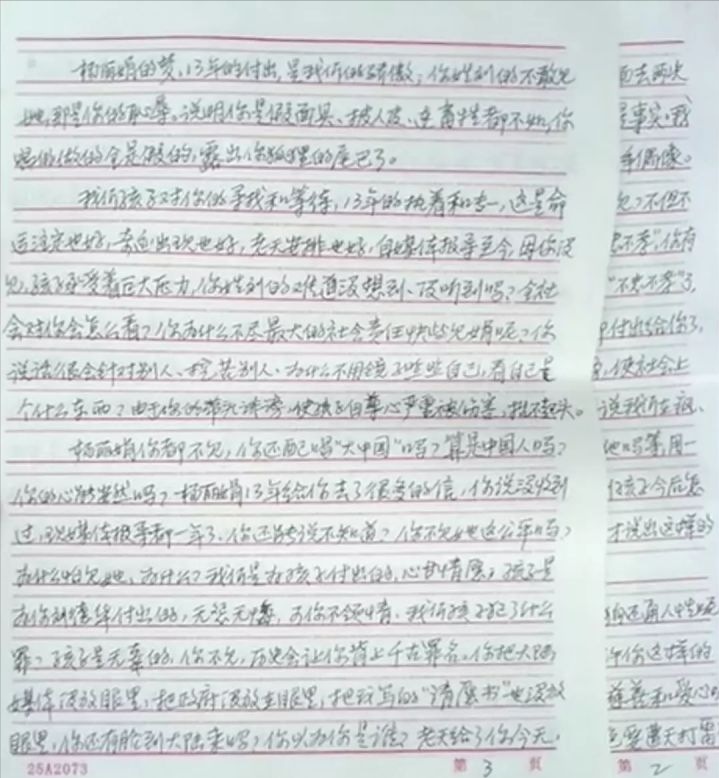 杨丽娟的梦,13年的付出,是我们的骄傲;你姓刘的不敢见
她,那是你的耻辱。说明你是假面具、披人皮、连畜牲都不如,你
唱的做的全是假的,露出你狐狸的尾巴了。
我们孩子对你的寻找和等待,13年的执着和专一,这是命
运注定也好,奇迹出现也好,老天安排也好,自媒体报导至今,因你没
见,孩子承受着巨大压力,你姓刘的难道没想到、没听到吗?全社
会对你会怎么看?你为什么不尽最大的社会责任快些见娟呢?你
说话很会针对别人、挖苦别人、为什么不用镜子照照自己,看自己是
个什么东西?由于你的带头诽谤,使孩子自尊心严重被伤害,抬不起头。
杨丽娟你都不见,你还配唱“大中国”吗?算是中国人吗?
你的心能安然吗?杨丽娟13年给你去了很多的信,你说没收到
过,现媒体报导都一年了,你还能说不知道?你不见她这公平吗?
为什么怕见她,为什么?我们是为孩子付出的,心甘情愿,孩子是
为你刘德华付出的,无怨无悔,可你不领情。我们孩子犯了什么
罪?孩子是无辜的,你不见,历史会让你背上千古罪名。你把大陆
媒体没放眼里,把政府没放在眼里,把我写的“请愿书”也没放
眼里,你还有脸到大陆来吗?你以为你是谁?老天给了你今天,
25A2073
第 3 页
而去两次
是事实,我
年偶像。
见?不但不
忠不孝”,你有
“不忠不孝”了,
付出给你了,
使社会上
说我们在疯、
她吗等,用一
孩子今后怎
才说出这样的
你这样的
慈善和爱心
要遭天打雷
第 2 页